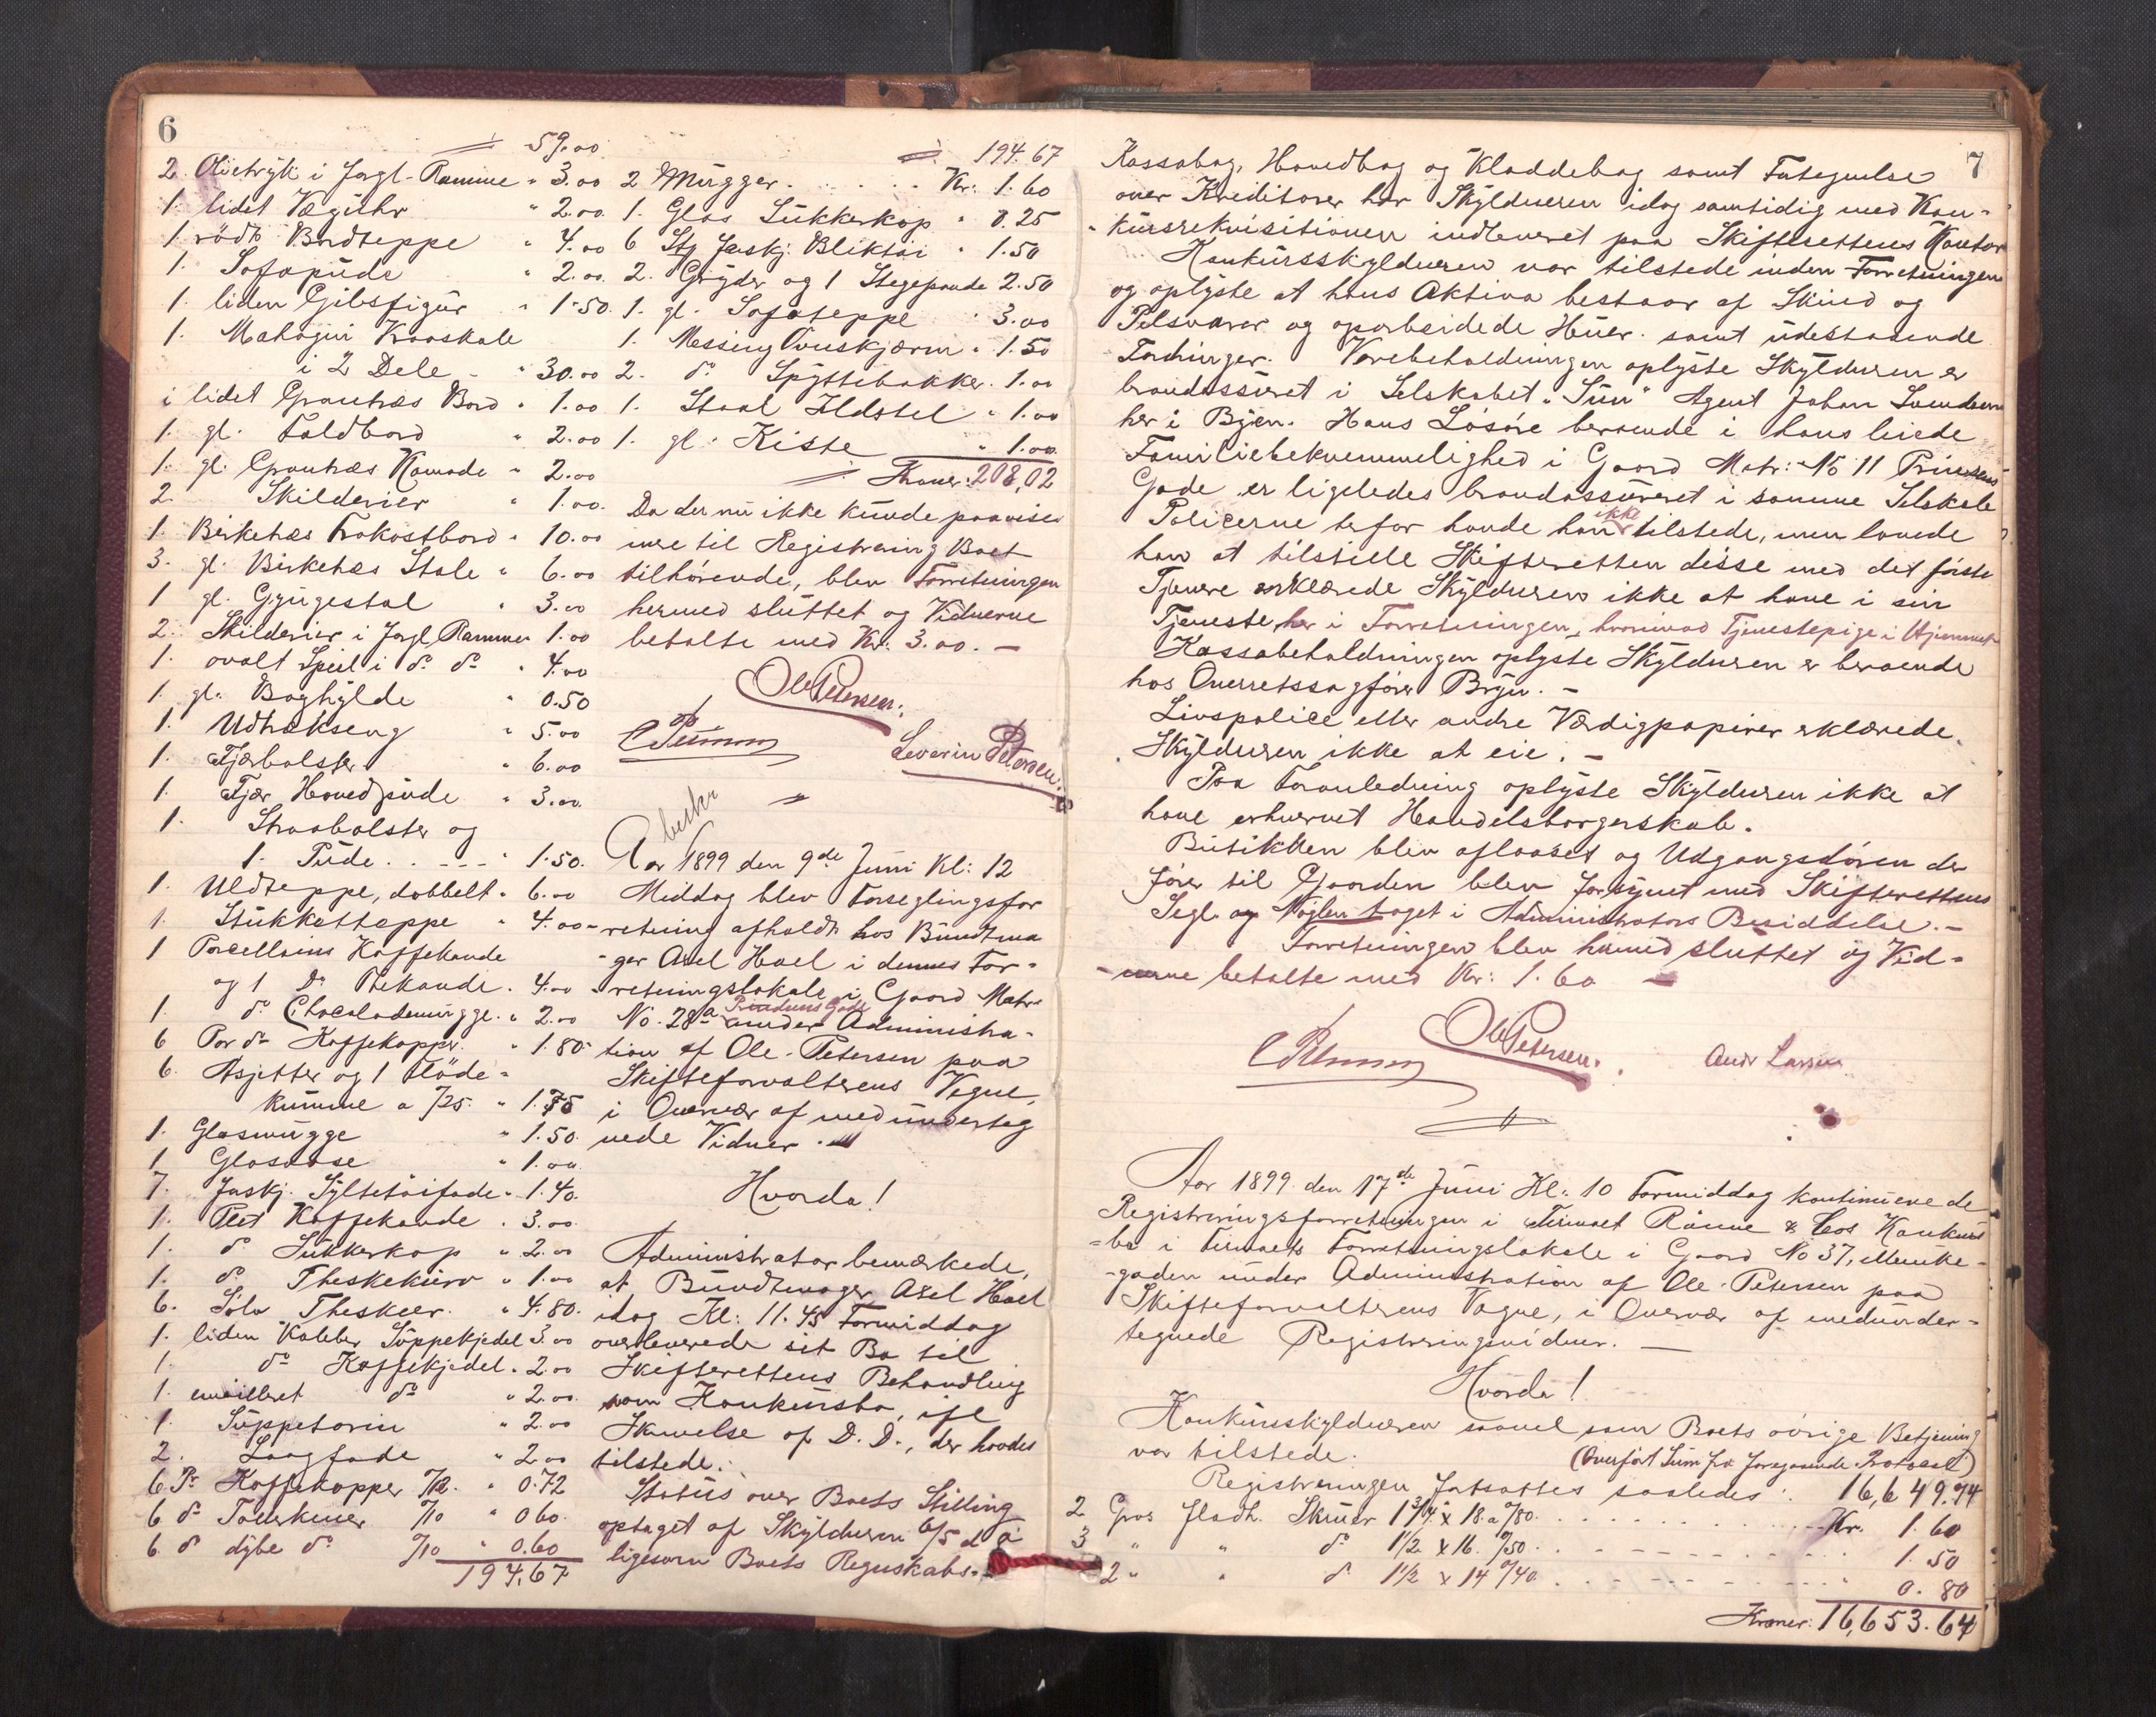 6
59.00
2. Olietryk i forgl. Ramme " 3.00
1. lidet Væguhr " 2.00
1 rödt Bordteppe " 4.00
1. Sofapude " 2.00
1. liden Gibsfigur " 1.50
1. Mahogni Kraaskale
i 2 Dele " 30.00
1 lidet Grantræs Bord " 1.00
1. gl. Foldbord " 2.00
1. gl. Grantræs Komode " 2.00
2. Skilderier " 1.00
1. Birketræs Frokostbord " 10.00
3. gl. Birketræs Stole " 6.00
1 gl. Gyngestol " 3.00
2. Skilderier i forgl. Rammer 1.00
1. ovalt Speil i do do " 4.00
1. gl. Boghylde " 0.50
1. Udtrækseng " 5.00
1. Fjærbolster " 6.00
1. Fjær Hovedpude " 3.00
1. Straabolster og
1. Pude " 1.50
1. Uldteppe, dobbelt " 6.00
1. Stükketteppe " 4.00
1 Porcellains Kaffekande
og 1 Do Thekande " 4.00
1. do Chocolademugge " 2.00
6 Par do Kaffekopper " 1.80
6. Asjetter og 1 Flöde-
kumme a /25. " 1.75
1. Glasmugge " 1.50
1 Glasdaase " 1.00
7. forskj. Syltetöifade " 1.40
1. Plet Kaffekande " 3.00
1. do Sukkerkop " 2.00
1. do Theskekurv " 1.00
6. Sölv Theskeer " 4.80
1. liden Kobber Suppekjedel 3.00
1. do Kaffekjedel " 2.00
1. emailleret do " 2.00
1. Suppeterin " 2.00
2. Laagfade " 2.00
6 Pr Kaffekopper /12 " 0.72
6 do Tallerkener /10 " 0.60
6. do dybe do /10 " 0.60
194,67
194.67
2 Mugger Kr. 1.60
1. Glas Sukkerkop " 0.25
6 Stk forskj. Bliktöi " 1.50
2. Gryder og 1 Stegepande 2.50
1. gl. Sofateppe " 3.00
1. Messing Ovnskjærm " 1.50
2. do Spyttebakker " 1.00
1. Staal Ildstel " 1.00
1. gl. Kiste " 1.00
Kroner: 208,02
Da der nu ikke kunde paavises
mere til Registrering Boet
tilhörende, blev Forretningen
hermed sluttet og Vidnerne
betalte med Kr. 3.00. —
Ole Petersen.
Severin Petersen
Aar 1899 den 9de Juni Kl: 12
Middag blev Forseglingsfor
retning afholdt hos Bundtma
ger Axel Hoel i dennes For-
retningslokale i Gaard Matr
Prindsens Gade
No. 28a under Administra-
tion af Ole Petersen paa
Skifteforvalterens Vegne,
i Overvær af medunderteg
nede Vidner.
Hvorda!
Administrator bemærkede,
at Bundtmager Axel Hoel
idag Kl: 11.45 Formiddag
overleverede sit Bo til
Skifterettens Behandling
som Konkursbo, ifl
Skrivelse af D. D., der havdes
tilstede.
Status over Boets Stilling
optaget af Skylderen 6/5 d A
ligesom Boets Regnskabs-
7
Kassabog, Hovedbog og Kladdebog samt Fortegnelse
over Kreditorer har Skyldneren idag samtidig med Kon-
kursrekvisitionen indleveret paa Skifterettens Kontor
Konkursskyldneren var tilstede inden Forretningen
og oplyste at hans Aktiva bestaar af Skind og
Pelsvarer og oparbeidede Huer samt udestaaende
Fordringer. Varebeholdningen oplyste Skyldneren er
brandassureret i Selskabet "Sun" Agent Johan Lundgren
her i Byen. Hans Lösöre beroende i hans leiede
Familiebekvemmelighed i Gaard Matr: No 11 Prinsens
Gade er ligeledes brandassureret i samme Selskab
Policerne herfor havde han ikke tilstede, men lovede
han at tilstille Skifteretten disse med det förste
Tjenere erklærede Skyldneren ikke at have i sin
Tjeneste her i Forretningen, hvorimod Tjenestepige i Hjemmet
Kassabeholdningen oplyste Skyldneren er beroende
hos Overretssagförer Bryn. —
Livspolice eller andre Værdipapirer erklærede
Skyldneren ikke at eie. —
Paa Foranledning oplyste Skyldneren ikke at
have erhvervet Handelsborgerskab.
Butikken blev aflaaset og Udgangsdören der
förer til Gaarden blev forsynet med Skifterettens
Segl og Nöglen taget i Administrators Besiddelse. —
Forretningen blev hermed sluttet og Vid-
nerne betalte med Kr: 1.60
Ole Petersen.
Andr Larsen
Aar 1899 den 17de Juni Kl: 10 Formiddag kontinuerede
Registreringsforretningen i Firmaet Rönne & Cos Konkurs
bo i Firmaets Forretningslokale i Gaard No 37, Munke-
gaden under Administration af Ole Petersen paa
Skifteforvalterens Vegne, i Overvær af medunder-
tegnede Registreringsvidner. —
Hvorda!
Konkursskyldneren saavel som Boets övrige Betjening
var tilstede.
(Overfört Sum fra foregaaende Protocol)
Registreringen fortsattes saaledes: 16,649.74
2 Gros fladh. Skruer 1 3/4 x 18 a /80 Kr. 1.60
3 " " do 1 1/2 x 16 /50 1.50
2 " " do 1 1/2 x 14 /40 0.80
Kroner: 16,653.64